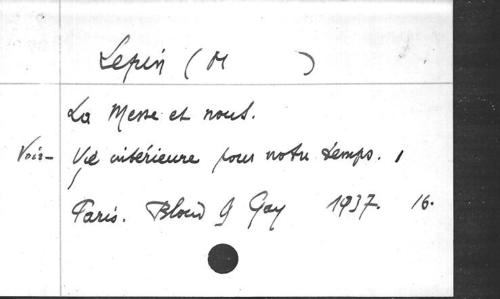 Lepin (M )
La Messe et nous.
Voir - Vie intérieure pour notre temps.
Paris. Bloud & Gay 1937. 16.